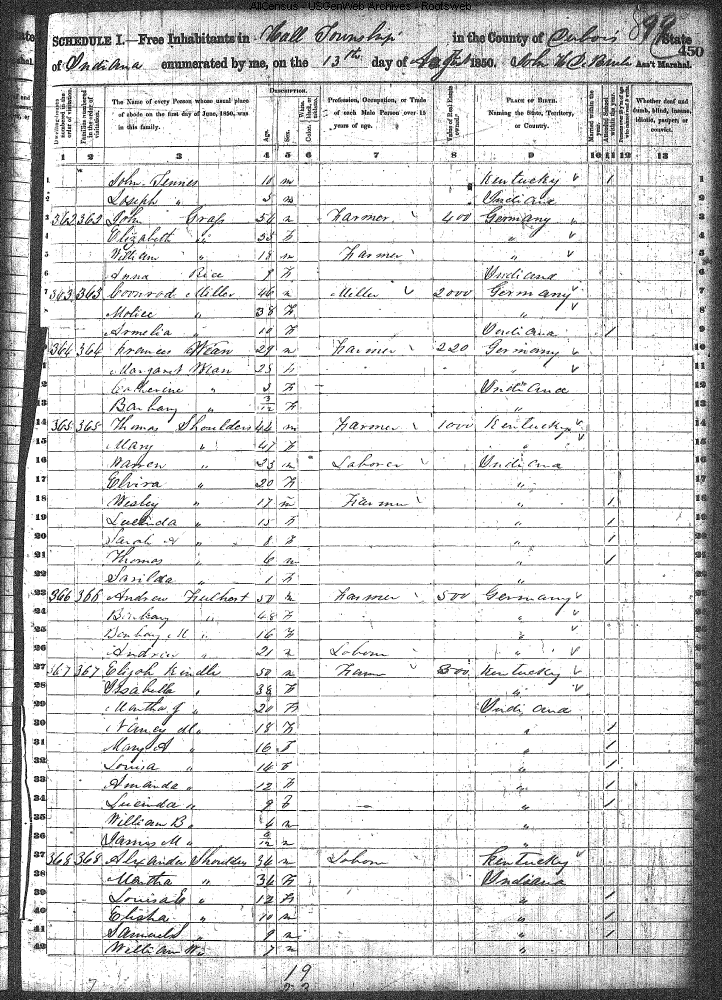 AllCensus - USGenWeb Archives - Rootsweb
SCHEDULE I.—Free Inhabitants in Hall Township in the County of Dubois State 450
of Indiana enumerated by me, on the 13th day of Augt 1850. John Ass't Marshal.
Dwelling-houses numbered in the order of visitation.
Families numbered in the order of visitation.
The Name of every Person whose usual place of abode on the first day of June, 1850, was in this family.
DESCRIPTION.
Age.
Sex.
Color, White, black, or mulatto.
Profession, Occupation, or Trade of each Male Person over 15 years of age.
Value of Real Estate owned.
PLACE OF BIRTH. Naming the State, Territory, or Country.
Married within the year.
Attended School within the year.
Whether deaf and dumb, blind, insane, idiotic, pauper, or convict.
1 2 3 4 5 6 7 8 9 10 11 12 13
1 John Tennes m Kentucky 1
2 Joseph " 5 m Indiana
3 362 362 John Grass m Farmer 400 Germany
4 Elizabeth " F "
5 William " 18 m Farmer "
6 Anna Rice 9 F Indiana
7 363 363 Coonrod Miller 46 m Miller 2000 Germany
8 " 38 F "
9 Armelia " 10 F Indiana 1
10 364 364 Frances Wean 29 m Farmer 220 Germany
11 Margaret Wean 25 F "
12 Catherine " 3 F Indiana
13 Barbary " 3/12 F "
14 365 365 Thomas Shoulders 44 m Farmer 1000 Kentucky
15 Mary " 47 F "
16 Warren " 23 m Laborer Indiana
17 Elvira " 20 F "
18 Wesley " 17 m Farmer " 1
19 Lucinda " 15 F " 1
20 Sarah A " 8 F " 1
21 Thomas " 6 m " 1
22 Sarilda " 1 F "
23 366 366 Andrew 50 m Farmer 500 Germany
24 " 48 F "
25 M " 16 F "
26 Andrew " 21 m Laborer "
27 367 367 Elijah Kindle 50 m Farmer 300 Kentucky
28 Issabella " 38 F "
29 Martha J " 20 F Indiana
30 Nancy M " 18 F " 1
31 Mary A " 16 F " 1
32 Louisa " 14 F " 1
33 Amanda " 12 F " 1
34 Lucinda " 9 F " 1
35 William B " 4 m "
36 James M " m "
37 368 368 Alexander Shoulders 36 m Laborer Kentucky
38 Martha " 36 F Indiana
39 Louisa E " 12 F " 1
40 Elisha " 10 m " 1
41 Samuel " 9 m " 1
42 William W " 7 m "
19